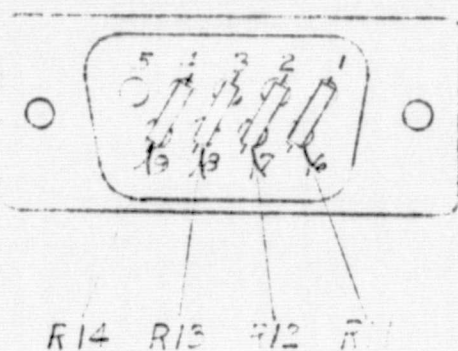 5 4 3 2 1
9 8 7 6
R14 R13 R12